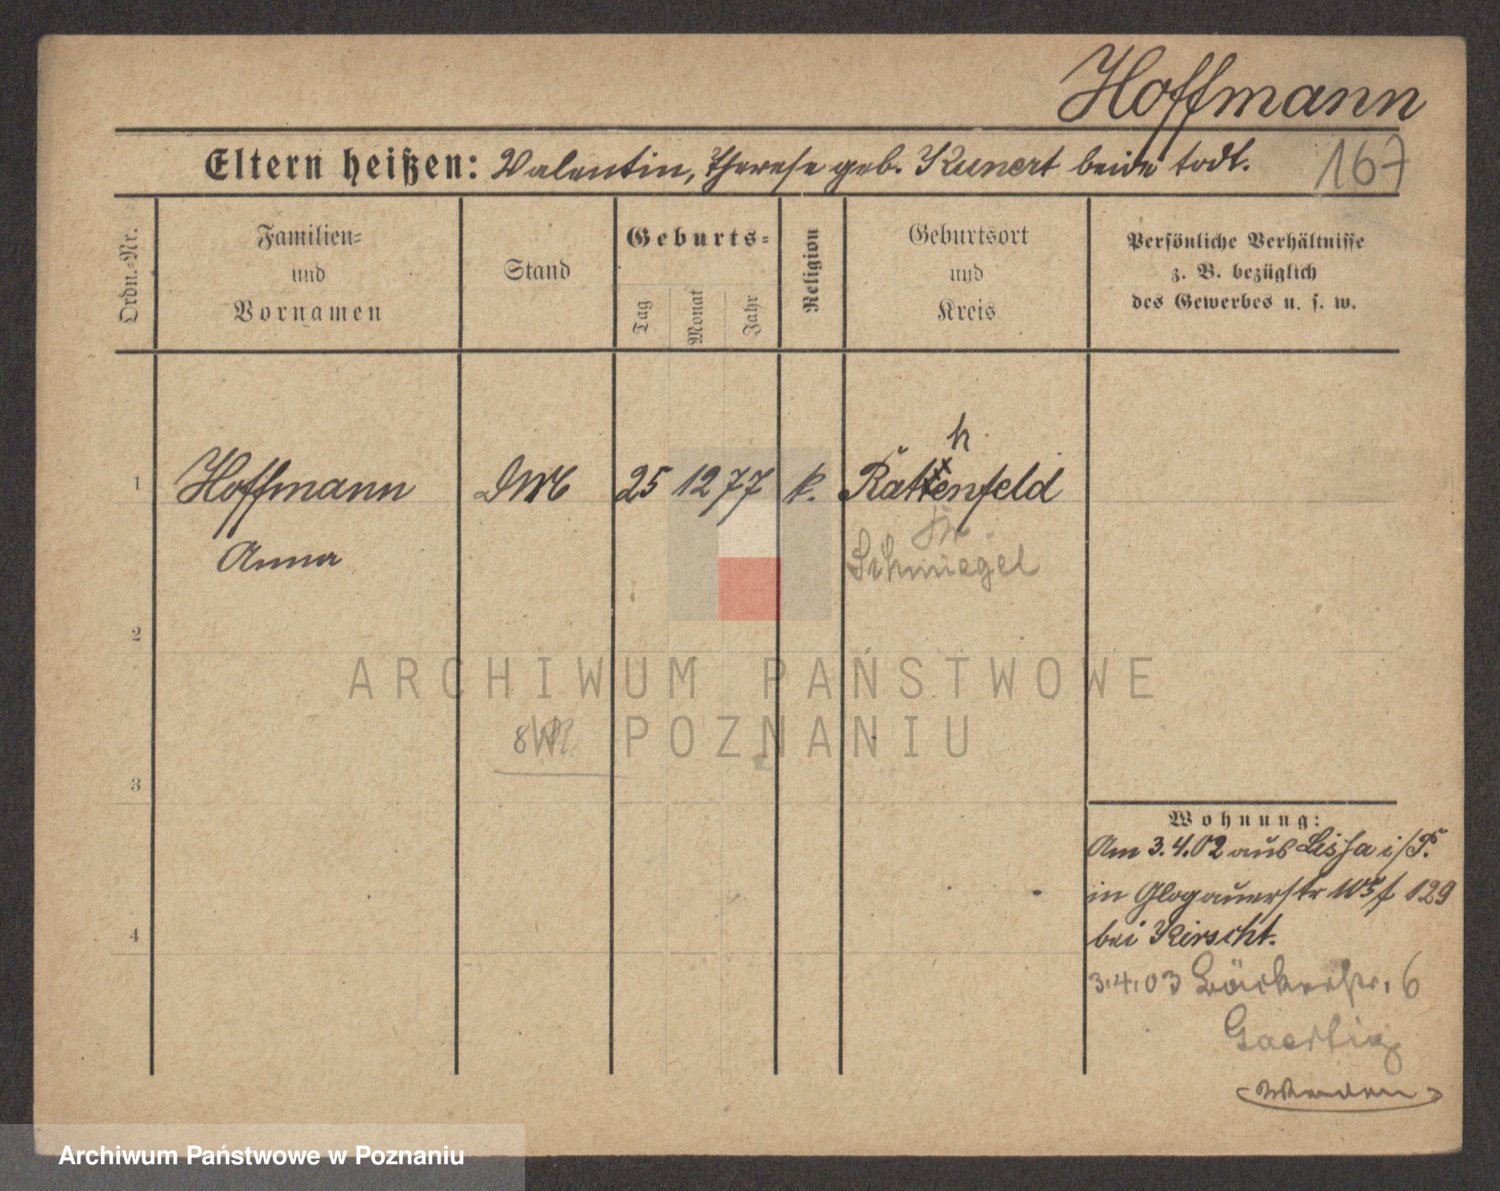 Hoffmann
Eltern heißen: Valentin, Therese geb. Kunert beide todt.
167
Ordn.-Nr.
Familien-
und
Vornamen
Stand
Geburts-
Tag
Monat
Jahr
Religion
Geburtsort
und
Kreis
Persönliche Verhältnisse
z. B. bezüglich
des Gewerbes u. s. w.
h
1 Hoffmann 25 12 77 k. Rattenfeld
Anna
Schmiegel
2
ARCHIWUM PAŃSTWOWE
W POZNANIU
3
Wohnung:
Am 3.4.02 aus Lissa i/P.
in Glogauerstr 129
4 bei Kirscht.
3.4.03 Bäckerstr. 6
Gaertig
Archiwum Państwowe w Poznaniu